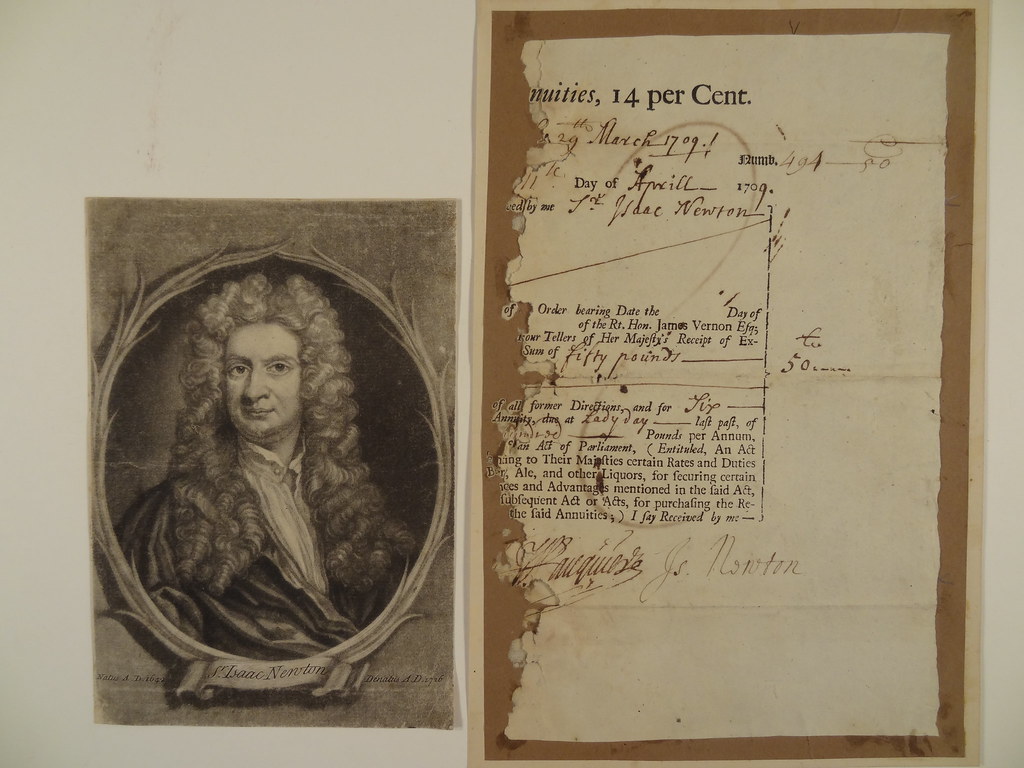 Sr. Isaac Newton
Natus A. D. 1642
Denatus A. D. 1726
nuities, 14 per Cent.
29th March 1709
Numb. 494 50
11th Day of Aprill 1709.
ved by me Sr. Isaac Newton
of Order bearing Date the Day of
of the Rt. Hon. James Vernon Esq;
our Tellers of Her Majesty's Receipt of Ex-
Sum of fifty pounds
to
50
of all former Directions, and for Six
Annuity, due at Lady day last past, of
Pounds per Annum,
an Act of Parliament, (Entituled, An Act
ing to Their Majesties certain Rates and Duties
Ale, and other Liquors, for securing certain
ces and Advantages mentioned in the said Act,
subsequent Act or Acts, for purchasing the Re-
the said Annuities;) I say Received by me
Is. Newton